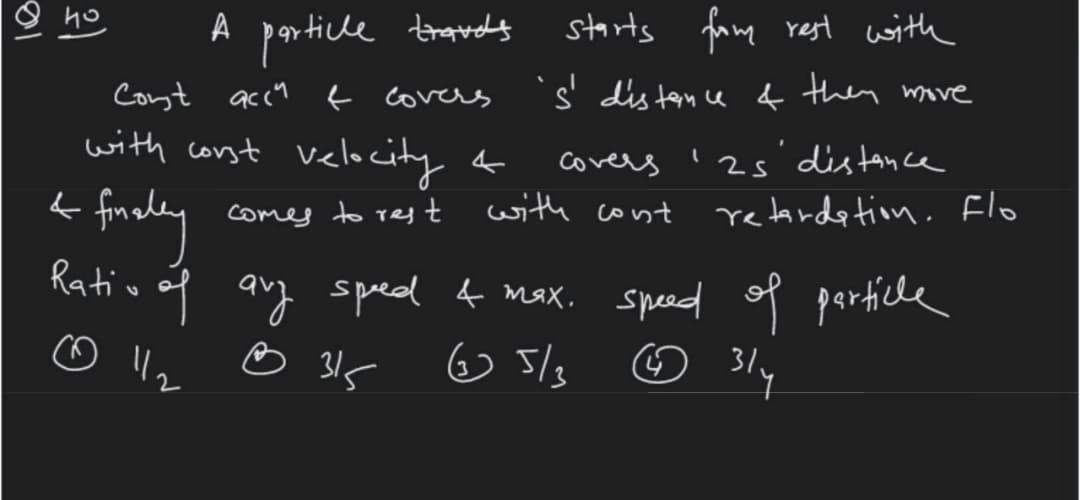 Q 40 A particle travels starts from rest with
Const accn & covers 's' distance & then move
with const velocity & covers '2s' distance
& finaley comes to rest with const retardation. F/o
Ratio of avg speed & max. speed of particle
① 1/2 ② 3/5 ③ 5/3 ④ 3/4